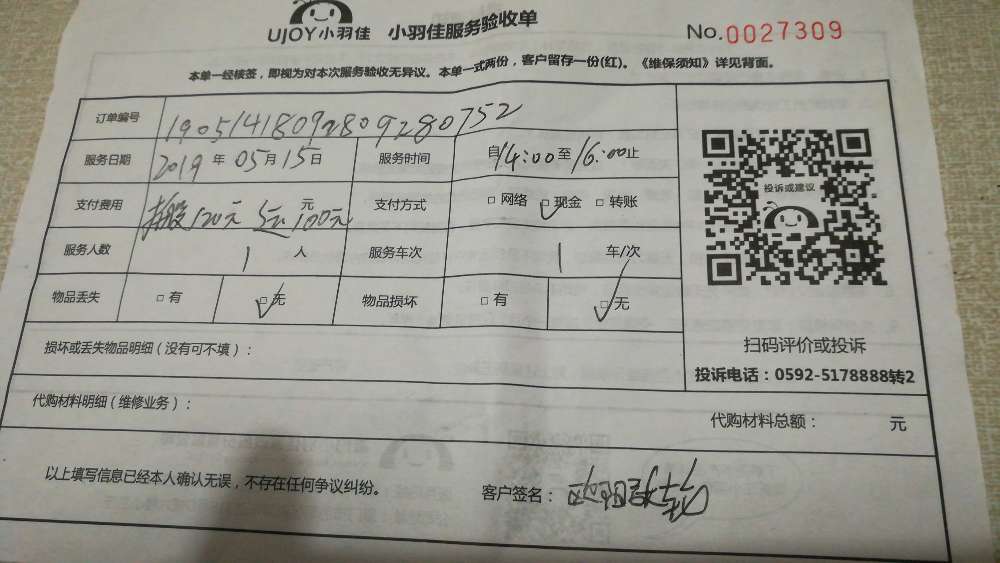 UJOY小羽佳 小羽佳服务验收单 No.0027309
本单一经核签，即视为对本次服务验收无异议。本单一式两份，客户留存一份(红)。《维保须知》详见背面。
订单编号 19051418092809280752
服务日期 2019年05月15日 服务时间 自14:00至16:00止
支付费用 搬 120元 100元 元 支付方式 □网络 □现金 □转账
服务人数 1人 服务车次 1车/次
物品丢失 □有 □无 物品损坏 □有 □无
投诉或建议
扫码评价或投诉
投诉电话：0592-5178888转2
损坏或丢失物品明细（没有可不填）：
代购材料明细（维修业务）： 代购材料总额： 元
以上填写信息已经本人确认无误，不存在任何争议纠纷。 客户签名：